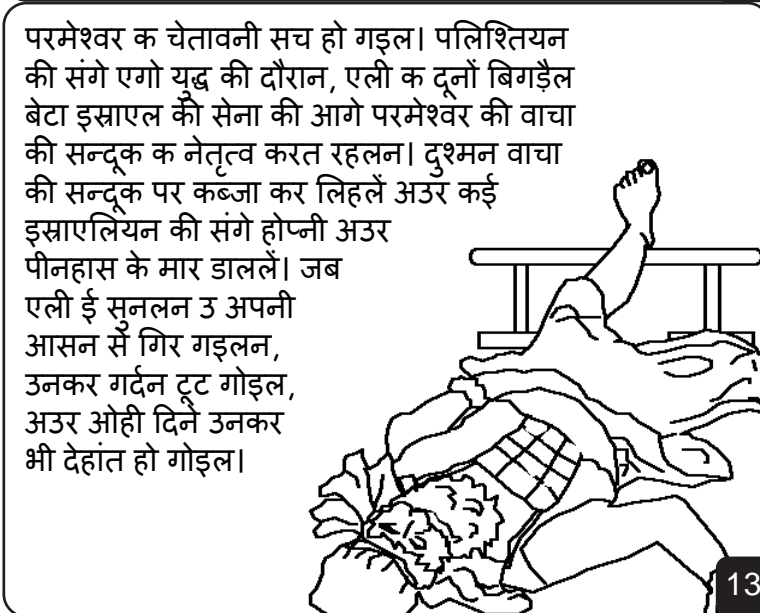 परमेश्वर क चेतावनी सच हो गइल। पलिश्तियन
की संगे एगो युद्ध की दौरान, एली क दूनों बिगड़ैल
बेटा इस्राएल की सेना की आगे परमेश्वर की वाचा
की सन्दूक क नेतृत्व करत रहलन। दुश्मन वाचा
की सन्दूक पर कब्जा कर लिहलें अउर कई
इस्राएलियन की संगे होप्नी अउर
पीनहास के मार डाललें। जब
एली ई सुनलन उ अपनी
आसन से गिर गइलन,
उनकर गर्दन टूट गोइल,
अउर ओही दिने उनकर
भी देहांत हो गोइल।
13